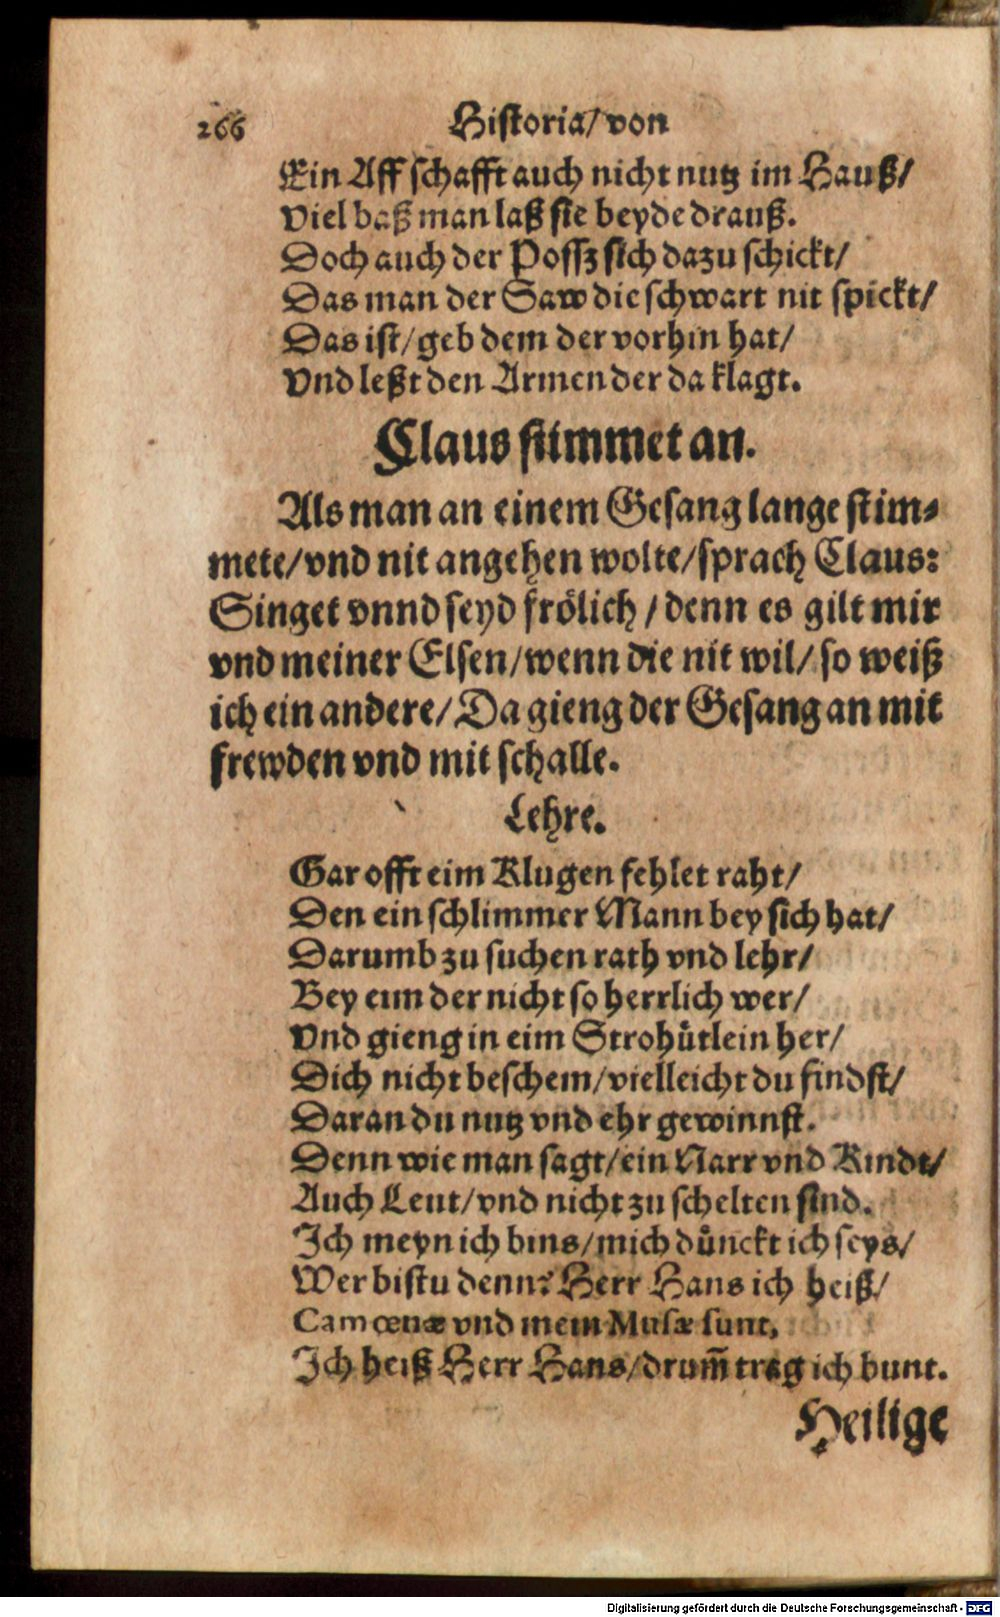 266 Historia/ von
Ein Aff schafft auch nicht nutz im Hauß/
Viel baß man laß sie beyde drauß.
Doch auch der Possz sich dazu schickt/
Das man der Saw die schwart nit spickt/
Das ist/ geb dem der vorhin hat/
Vnd leßt den Armen der da klagt.
Claus stimmet an.
Als man an einem Gesang lange stim-
mete/ vnd nit angehen wolte/ sprach Claus:
Singet vnnd seyd frölich / denn es gilt mir
vnd meiner Elsen/ wenn die nit wil/ so weiß
ich ein andere/ Da gieng der Gesang an mit
frewden vnd mit schalle.
Lehre.
Gar offt eim Klugen fehlet raht/
Den ein schlimmer Mann bey sich hat/
Darumb zu suchen rath vnd lehr/
Bey eim der nicht so herrlich wer/
Vnd gieng in eim Strohütlein her/
Dich nicht beschem/ vielleicht du findst/
Daran du nutz vnd ehr gewinnst.
Denn wie man sagt/ ein Narr vnd Kindt/
Auch Leut/ vnd nicht zu schelten sind.
Ich meyn ich bins/ mich dünckt ich seys/
Wer bistu denn? Herr Hans ich heiß/
Camœnæ vnd mein Musæ sunt,
Ich heiß Herr Hans/ drum̃ trag ich bunt.
Heilige
Digitalisierung gefördert durch die Deutsche Forschungsgemeinschaft - DFG